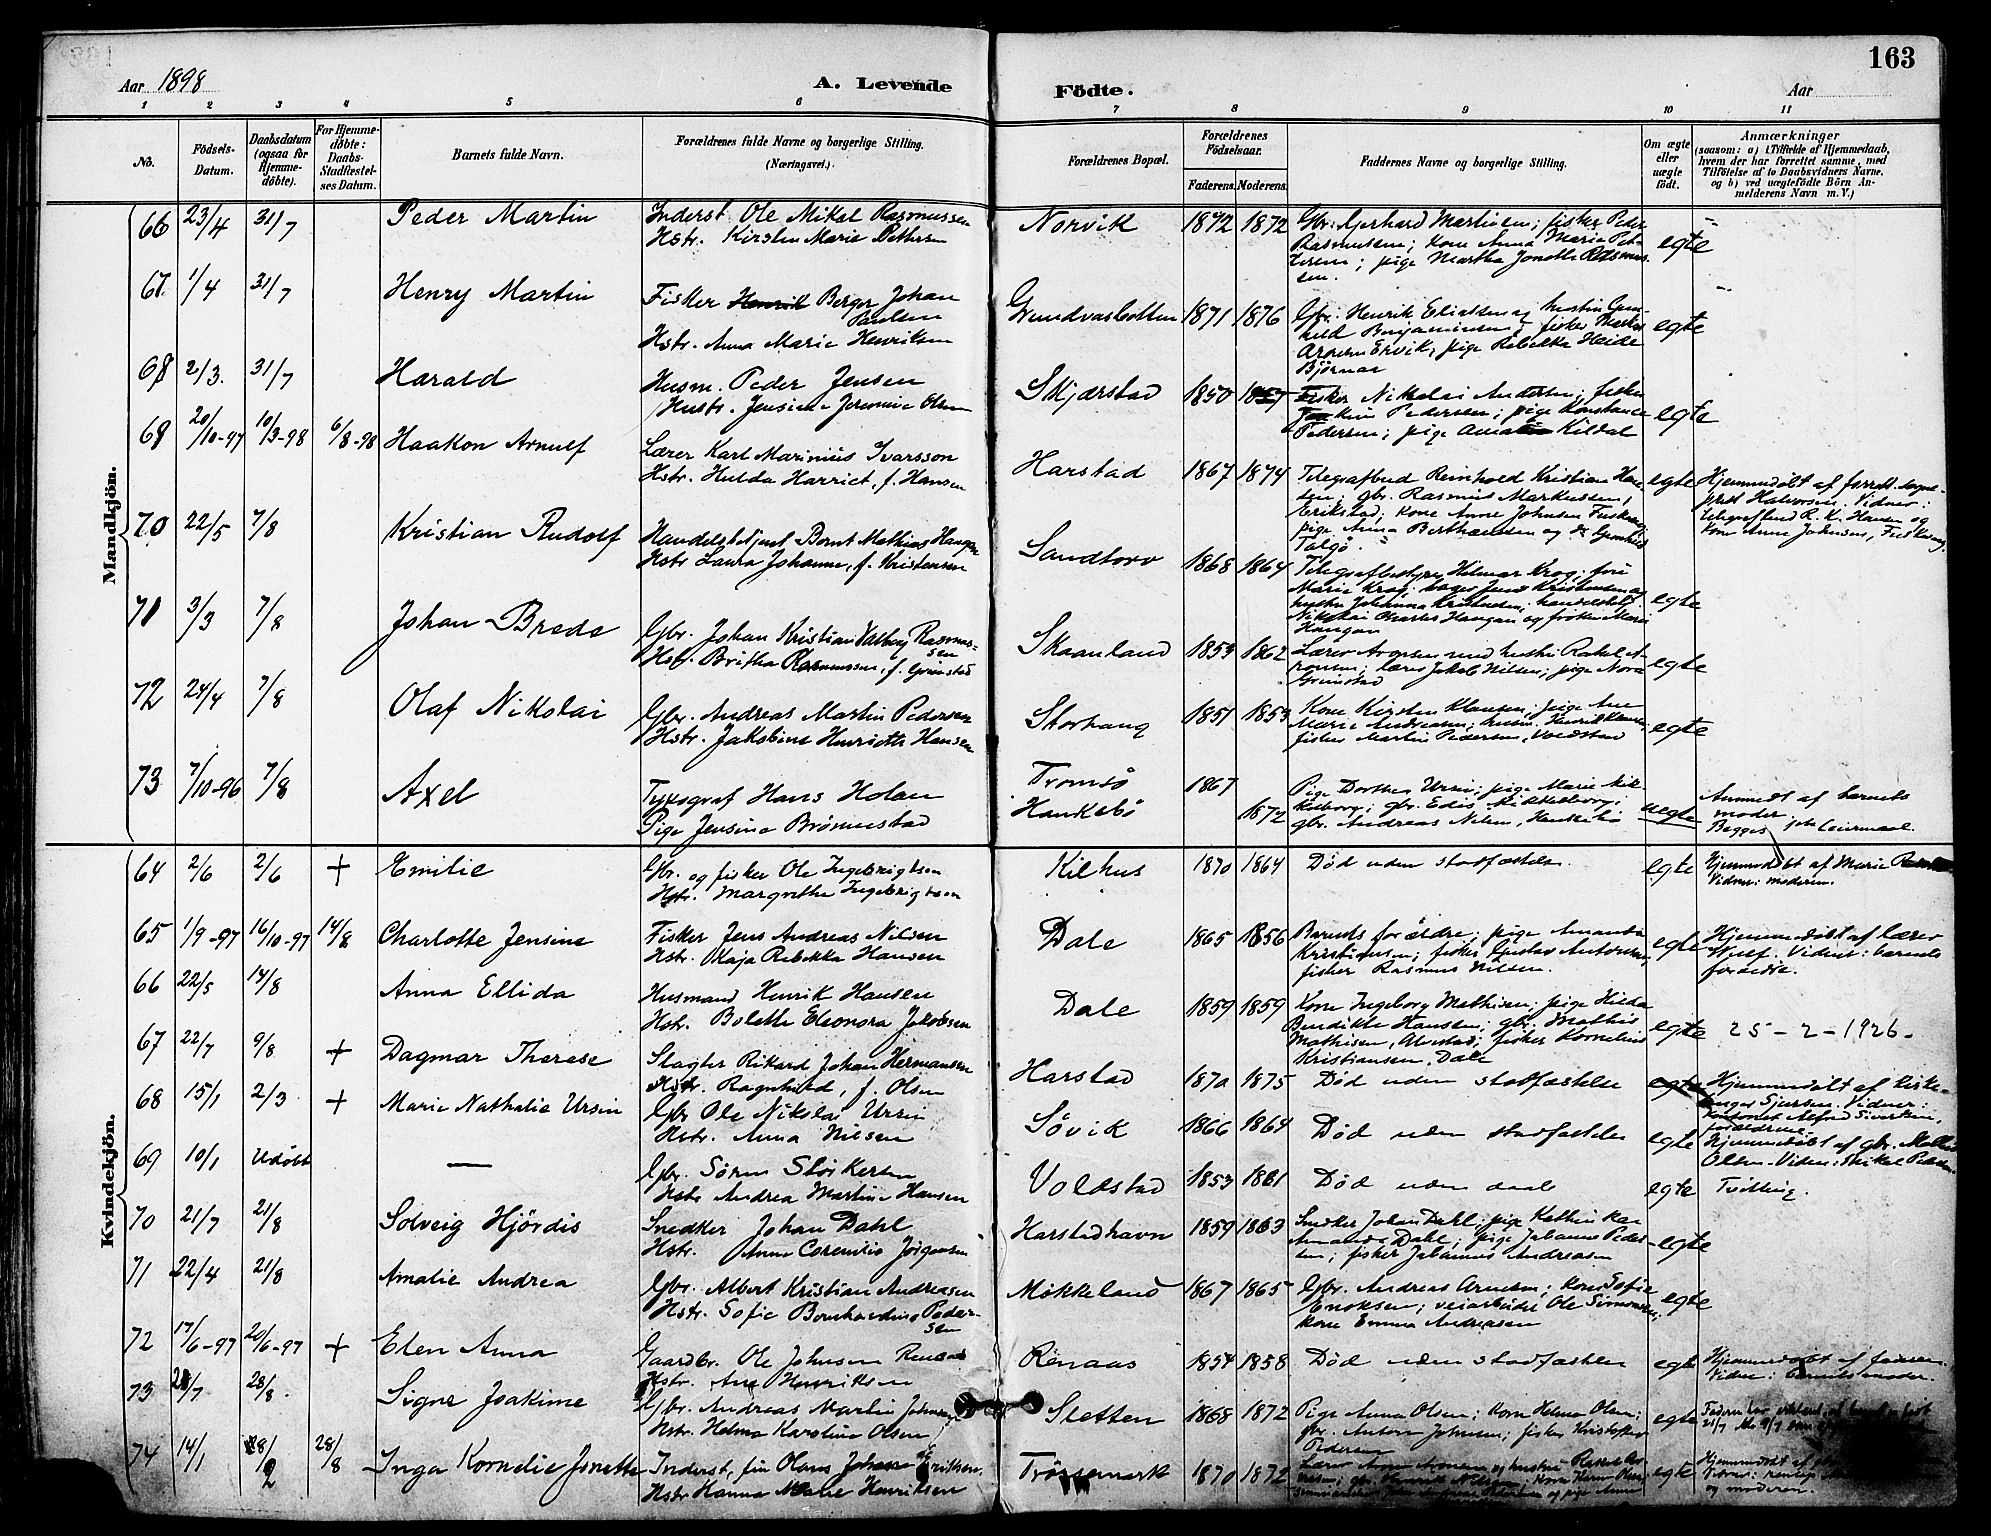 163
Aar 1898
A. Levende
Födte.
Aar
1 2 3 4 5 6 7 8 9 10 11
No.
Födsels-Datum.
Daabsdatum (ogsaa for Hjemme-döbte).
For Hjemme-döbte: Daabs-Stadfæstel-ses Datum.
Barnets fulde Navn.
Forældrenes fulde Navne og borgerlige Stilling.
(Næringsvei.)
Forældrenes Bopæl.
Forældrenes Födselsaar.
Faderens. Moderens.
Faddernes Navne og borgerlige Stilling.
Om ægte eller uægte födt.
Anmærkninger
(saasom: a) i Tilfælde af Hjemmedaab,
hvem der har forrettet samme, med
Tilföielse af to Daabsvidners Navne,
og b) ved uægtefödte Börn An-
melderens Navn m. V.)
Mandkjön.
66 23/4 31/7 Peder Martin
Inderst Ole Mikal Rasmussen
Hstr. Kirsten Marie Pettersen
Norvik 1872 1872
Gbr. Gerhard Martinsen; fisker Peder
Rasmussen; Kone Anna Marie Pet-
tersen; pige Martha Jonette Rasmus-
sen.
egte
67. 1/4 31/7 Henry Martin
Fisker Henrik Berger Johan
Paulsen
Hstr. Anna Marie Henriksen
Grundvasbotten 1871 1876
Gbr. Henrik Eliassen og hustru Gun-
hild Benjaminsen; fisker Martin
Aronsen Ervik; pige Rebekka Heide
Bjørnar
egte
68 2/3. 31/7 Harald
Husm. Peder Jensen
Hustr. Jensine Jeremine Olsen
Skjærstad 1850
Fisker Nikolai Andersen; fisker
Pedersen; pige Konstance
Pedersen; pige Kildal
egte
69 20/10-97 10/3-98 6/8-98 Haakon Arnulf
Lærer Karl Marinius Ivarsson
Hstr. Hulda Harriet, f. Hansen
Harstad 1867 1874
Telegrafbud Reinhold Kristian Han-
sen; gbr. Rasmus Markussen,
Erikstad; Kone Anne Johnsen
pige Anna Berthansen og
Talgö.
egte
Hjemmedøbt af forrett. sogne-
prest Halvorsen. Vidner:
telegrafbud R. K. Hansen og
Kone Anne Johnsen,
70 22/5 7/8 Kristian Rudolf
Handelsbetjent Bernt Mathias Haugen
Hstr Laura Johanne, f. Kristensen
Sandtorv 1868 1864
Telegrafbestyrer Hilmar Krog; frue
Marie Krog; bager Jens Kristensen og
hustru Johanna Kristensen, handelsbetj.
Nikolai Charles Haugan og frøken Marie
Haugan
egte
71 3/3 7/8 Johan Brede
Gbr. Johan Kristian Valberg Rasmus-
sen
Hstr. Britha Rasmussen, f. Grimstad
Skaanland 1853 1862
Lærer Aronsen med hustru Rakel A-
ronsen; lærer Jakob Nilsen; pige Nora
Grimstad
egte
72 24/4 7/8 Olaf Nikolai
Gbr. Andreas Martin Pedersen
Hstr. Jakobine Henriette Hansen
Storhaug 1851 1853
Kone Kirsten Klausen; pige Ane
Marie Andreasen; husm. Henrik Klausen,
fisker Martin Pedersen, Voldstad
egte
73 7/10-96 7/8 Axel
Typograf Hans Holan
Pige Jensine Brønnestad
Tromsö
Haukebö
1867
1872
Pige Dorthea Ursin; pige Marie Mik-
kelborg; gbr. Edis Mikkelborg;
gbr. Andreas Nilsen, Haukebö
uegte
Anmeldt af barnets
moder.
Begges 1ste Leiermaal.
Kvindekjön.
64 2/6 2/6 + Emilie
Gbr. og fisker Ole Ingebrigtsen
Hstr. Margrethe Ingebrigtsen
Kilhus 1870 1864
Død uden stadfæstelse.
egte
Hjemmedøbt af Marie
Vidner: moderen.
65 1/9-97 16/10-97 14/8 Charlotte Jensine
Fisker Jens Andreas Nilsen
Hstr. Kaja Rebekka Hansen
Dale 1865 1856
Barnets forældre; pige Amanda
Kristiansen; fisker Gustav Antonsen;
fisker Rasmus Nilsen.
egte
Hjemmedøbt af lærer
Wulf. Vidner: barnets
forældre.
66 22/5 14/8 Anna Ellida
Husmand Henrik Hansen
Hstr. Bolette Eleonora Jakobsen
Dale 1859 1859
Kone Ingeborg Mathisen; pige Hilda
Bendikte Hansen; gbr. Mathis
Mathisen, Alvestad; fisker Kornelius
Kristiansen, Dale
egte
25-2-1926.
67 22/7 9/8 + Dagmar Therese
Slagter Rikard Johan Hermansen
Hstr. Ragnhild, f. Olsen
Harstad 1870 1875
Død uden stadfæstelse
egte
68 15/1 2/3 + Marie Nathalie Ursin
Gbr Ole Nikolai Ursin
Hstr. Anna Nilsen
Søvik 1866 1864
Død uden stadfæstelse
egte
69 10/1 Udøbt —
Gbr. Sören Störkersen
Hstr Andrea Martine Hansen
Voldstad 1853 1861
Død uden daab
egte
Tvilling.
70 21/7 21/8 Solveig Hjördis
Snedker Johan Dahl
Hstr. Anna Cornelia Jörgensen
Harstadhavn 1859 1863
Snedker Johan Dahl; pige Kathinka
Amanda Dahl; pige Johanna Peder-
sen; fisker Johannes Andreasen
egte
71 22/4 21/8 Amalie Andrea
Gbr. Albert Kristian Andreasen
Hstr. Sofie Bernhardine Peder-
sen
Møkkeland 1867 1865
Gbr. Andreas Arntsen; Kone Sofie
Enoksen; veiarbeider Ole Simonsen;
Kone Emma Andreasen
egte
72 17/6-97 20/6-97 + Elen Anna
Gaardbr. Ole Johnsen Renaas
Hstr. Ane Henriksen
Renaas 1854 1858
Død uden stadfæstelse
egte
Hjemmedøbt af faderen.
Vidner: barnets moder.
73 28/8. Signe Joakime
Gbr. Andreas Martin Johnsen
Hstr. Helma Karoline Olsen
Sletten 1868 1872
Pige Anna Olsen; Kone Helma Olsen;
gbr. Anton Johnsen; fisker Kristoffer
Pedersen
egte
74 14/1 28/8 Inga Kornelie Jonette
Inderst, fin Olaus Johan Eriksen
Hstr Hanna Marie Henriksen
Trøssemark 1870 1872
Lærer Aron Aronsen og hustru Rakel
egte
Hjemmedøbt af
Vidner:
og moderen.